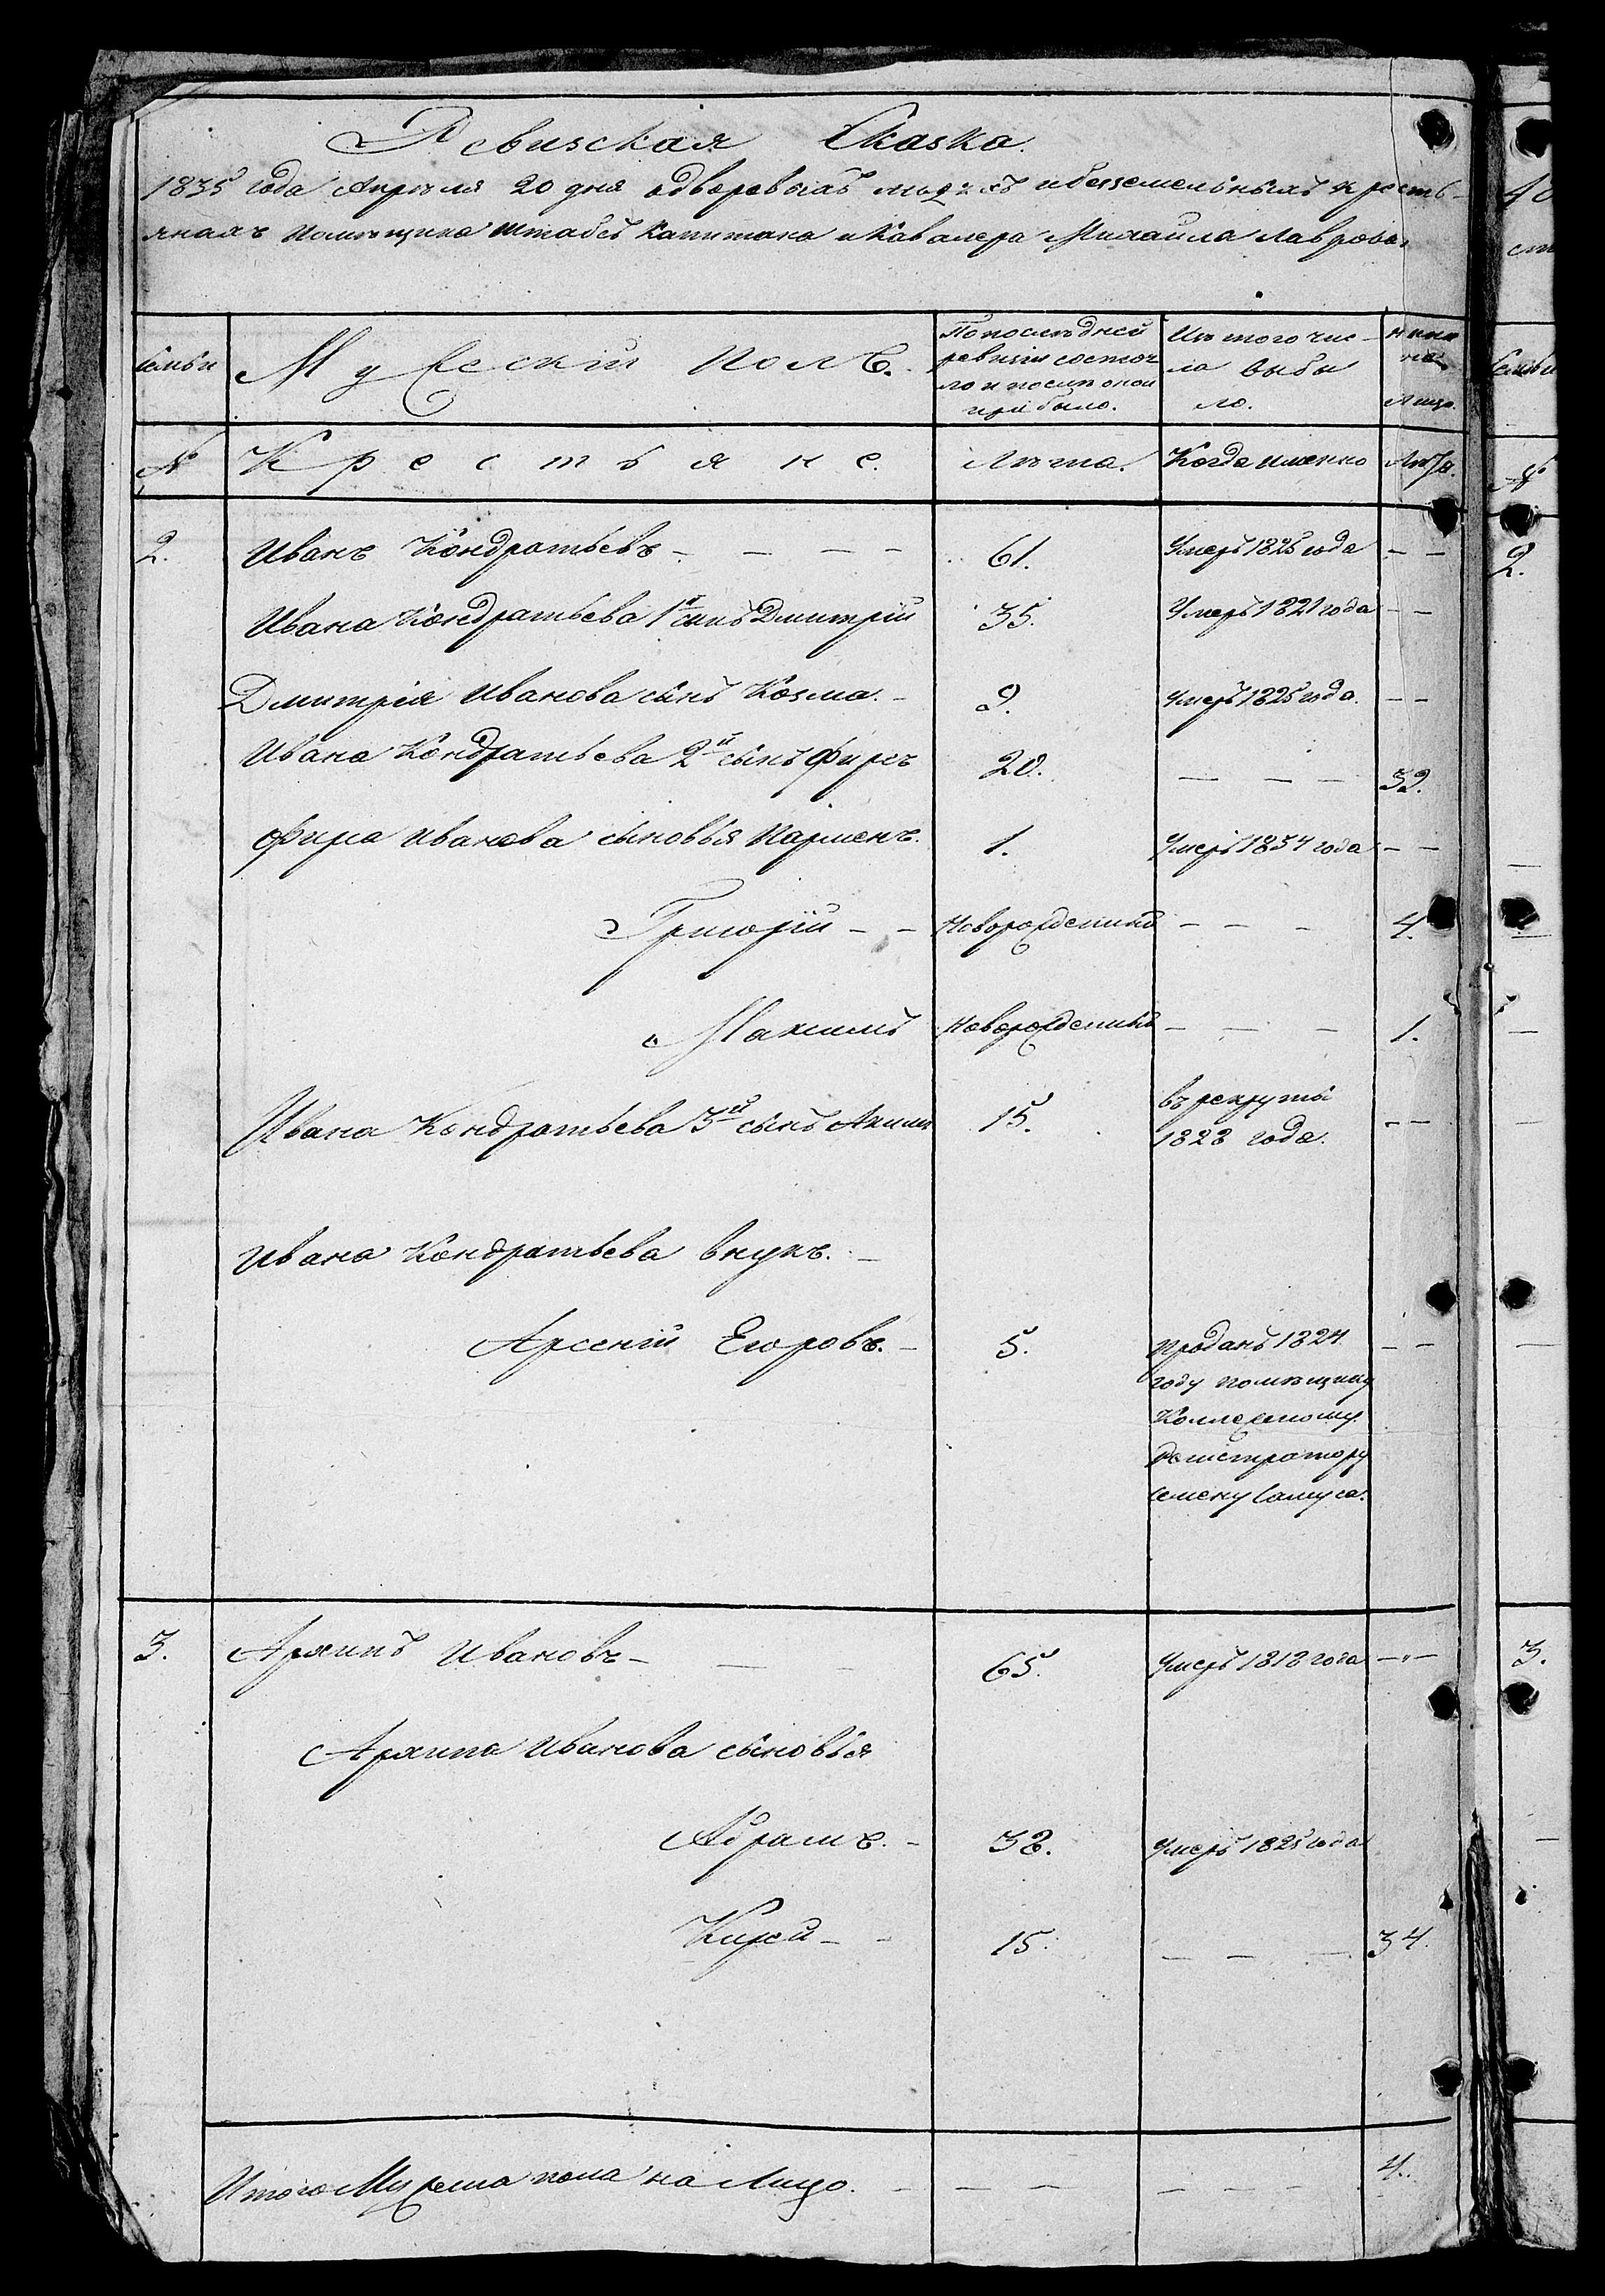 Ревизская Сказка.
1835 года Апрѣля 20 дня одворовыхъ людяхъ и безземельныхъ кресть-
янахъ Помѣщика штабсъ Капитана и Кавалера Михайла Лаврова
Семьи Мужескій полъ. По послѣдней ревизіи состояло и послѣ оной прибыло. Изъ того числа выбыло. Нынѣ на лицо.
№ Крестьяне. Лѣта. Когда именно Лѣта.
2. Иванъ Кондратьевъ 61. Умеръ 1825 года
Ивана Кондратьева 1й сынъ Дмитрій 35. Умеръ 1821 года
Дмитрія Иванова сынъ Козма. 9. Умеръ 1825 года.
Ивана Кондратьева 2й сынъ Фирсъ 20. 39.
Фирса Иванова сыновья Парменъ. 1. Умеръ 1834 года
Григорій Новорожденный 4.
Максимъ Новорожденный 1.
Ивана Кондратьева 3й сынъ Акимъ 15. въ рекруты
1828 года.
Ивана Кондратьева внукъ.
Арсеній Егоровъ. 5. Проданъ 1824
году помѣщику
Коллежскому
Регистратору
Семену
3. Архипъ Ивановъ 65. Умеръ 1818 года
Архипа Иванова сыновья
Абрамъ. 38. Умеръ 1825 года
Кирей 15. 34.
Итого Мужеска пола на Лицо. 4.
4
2.
3.
Семьи
№